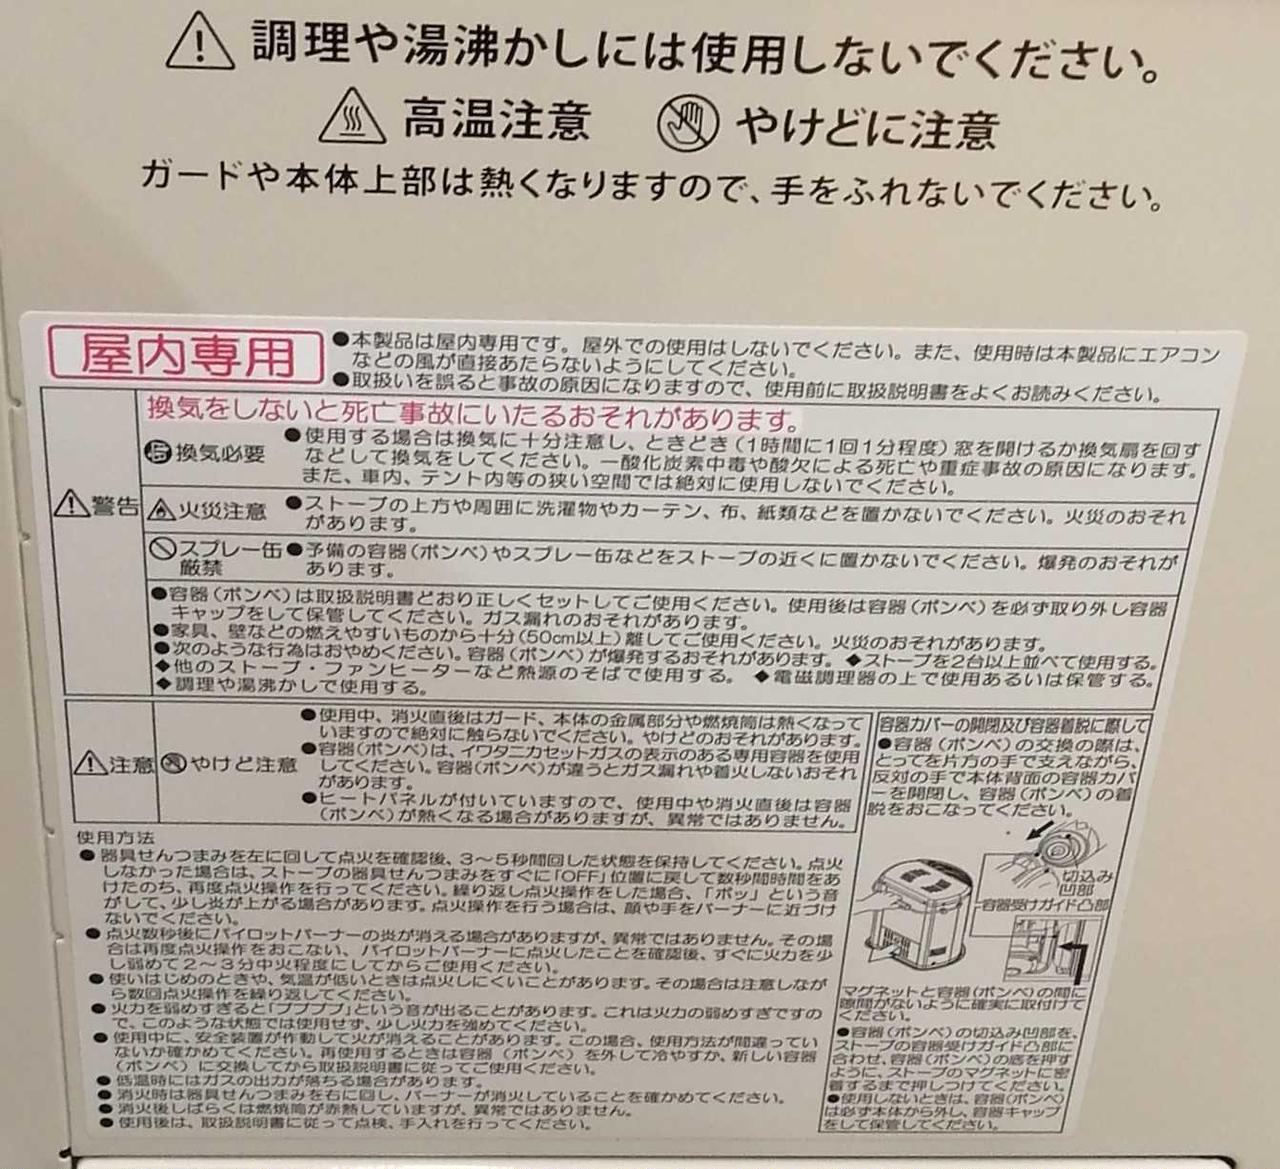 調理や湯沸かしには使用しないでください。
高温注意 やけどに注意
ガードや本体上部は熱くなりますので、手をふれないでください。
屋内専用
●本製品は屋内専用です。屋外での使用はしないでください。また、使用時は本製品にエアコン
などの風が直接あたらないようにしてください。
●取扱いを誤ると事故の原因になりますので、使用前に取扱説明書をよくお読みください。
警告
換気をしないと死亡事故にいたるおそれがあります。
換気必要
●使用する場合は換気に十分注意し、ときどき(1時間に1回1分程度)窓を開けるか換気扇を回す
などして換気をしてください。一酸化炭素中毒や酸欠による死亡や重症事故の原因になります。
また、車内、テント内等の狭い空間では絶対に使用しないでください。
火災注意
●ストーブの上方や周囲に洗濯物やカーテン、布、紙類などを置かないでください。火災のおそれ
があります。
スプレー缶
厳禁
●予備の容器(ボンベ)やスプレー缶などをストーブの近くに置かないでください。爆発のおそれが
あります。
●容器(ボンベ)は取扱説明書どおり正しくセットしてご使用ください。使用後は容器(ボンベ)を必ず取り外し容器
キャップをして保管してください。ガス漏れのおそれがあります。
●家具、壁などの燃えやすいものから十分(50cm以上)離してご使用ください。火災のおそれがあります。
●次のような行為はおやめください。容器(ボンベ)が爆発するおそれがあります。◆ストーブを2台以上並べて使用する。
◆他のストーブ・ファンヒーターなど熱源のそばで使用する。 ◆電磁調理器の上で使用あるいは保管する。
◆調理や湯沸かしで使用する。
注意
やけど注意
●使用中、消火直後はガード、本体の金属部分や燃焼筒は熱くなって
いますので絶対に触らないでください。やけどのおそれがあります。
●容器(ボンベ)は、イワタニカセットガスの表示のある専用容器を使用
してください。容器(ボンベ)が違うとガス漏れや着火しないおそれ
があります。
●ヒートパネルが付いていますので、使用中や消火直後は容器
(ボンベ)が熱くなる場合がありますが、異常ではありません。
使用方法
●器具せんつまみを左に回して点火を確認後、3〜5秒間回した状態を保持してください。点火
しなかった場合は、ストーブの器具せんつまみをすぐに「OFF」位置に戻して数秒間時間をあ
けたのち、再度点火操作を行ってください。繰り返し点火操作をした場合、「ボッ」という音
がして、少し炎が上がる場合があります。点火操作を行う場合は、顔や手をバーナーに近づけ
ないでください。
●点火数秒後にパイロットバーナーの炎が消える場合がありますが、異常ではありません。その場
合は再度点火操作をおこない、パイロットバーナーに点火したことを確認後、すぐに火力を少
し弱めて2〜3分中火程度にしてからご使用ください。
●使いはじめのときや、気温が低いときは点火しにくいことがあります。その場合は注意しなが
ら数回点火操作を繰り返してください。
●火力を弱めすぎると「ブブブブ」という音が出ることがあります。これは火力の弱めすぎですの
で、このような状態では使用せず、少し火力を強めてください。
●使用中に、安全装置が作動して火が消えることがあります。この場合、使用方法が間違ってい
ないか確かめてください。再使用するときは容器(ボンベ)を外して冷やすか、新しい容器
(ボンベ)に交換してから取扱説明書に従ってご使用ください。
●低温時にはガスの出力が落ちる場合があります。
●消火時は器具せんつまみを右に回し、バーナーが消火していることを確かめてください。
●消火後しばらくは燃焼筒が赤熱していますが、異常ではありません。
●使用後は、取扱説明書に従って点検、手入れを行ってください。
容器カバーの開閉及び容器着脱に際して
●容器(ボンベ)の交換の際は、
とってを片方の手で支えながら、
反対の手で本体背面の容器カバ
ーを開閉し、容器(ボンベ)の着
脱をおこなってください。
切込み
凹部
容器受けガイド凸部
マグネットと容器(ボンベ)の間に
隙間がないように確実に取付けて
ください。
●容器(ボンベ)の切込み凹部を、
ストーブの容器受けガイド凸部に
合わせ、容器(ボンベ)の底を押す
ように、ストーブのマグネットに密
着するまで押しつけてください。
●使用しないときは、容器(ボンベ)
は必ず本体から外し、容器キャップ
をして保管してください。